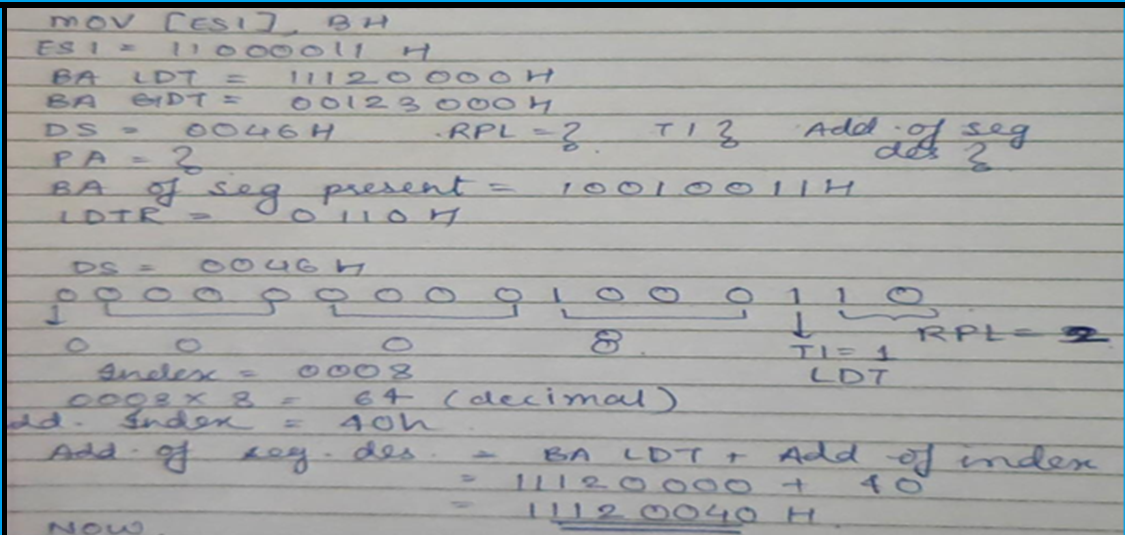 MOV [ESI], BH
ESI = 11000011 H
BA LDT = 11120000H
BA GDT = 00123000H
DS = 0046H RPL = ? TI ? Add. of seg des ?
PA = ?
BA of seg present = 10010011H
LDTR = 0110H
DS = 0046H
0 0 0 0 0 0 0 0 0 1 0 0 0 1 1 0
0 0 0 8 TI = 1 RPL = 2
Index = 0008 LDT
0008 x 8 = 64 (decimal)
dd. Index = 40h
Add. of seg. des. = BA LDT + Add of index
= 11120000 + 40
= 11120040 H
NOW